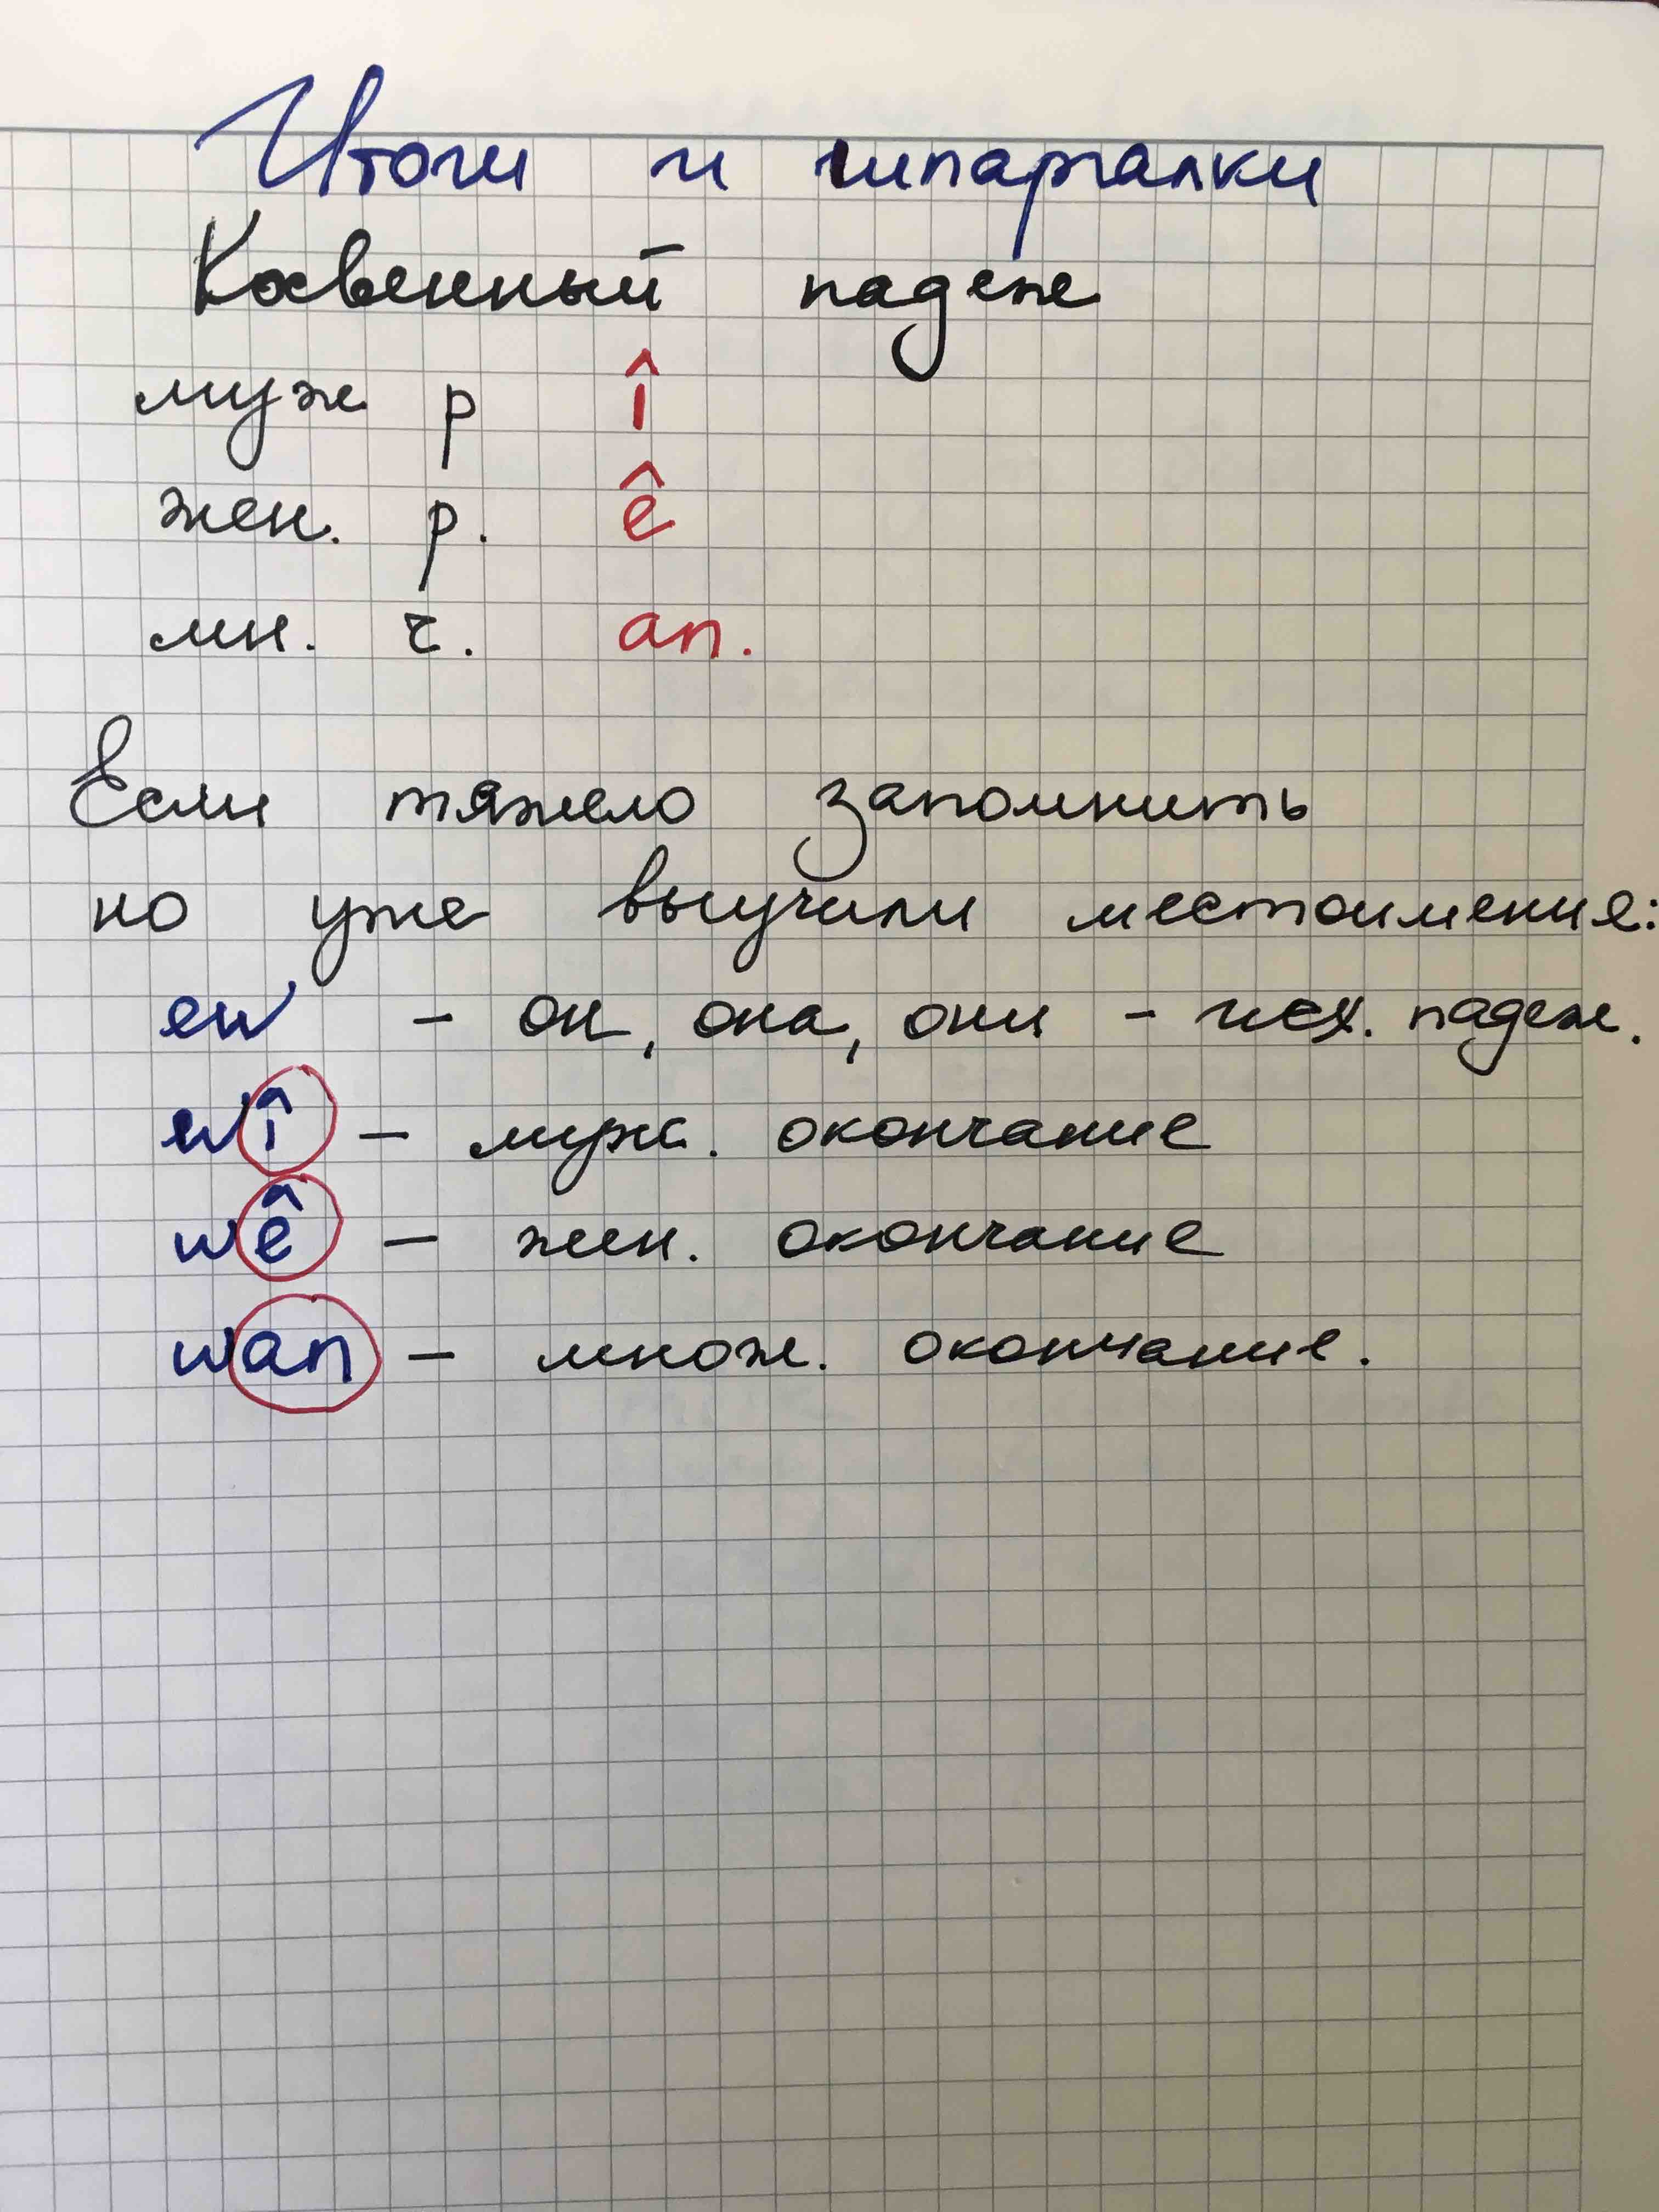 Итоги и шпаргалки
Косвенный падеж
муж р î
жен. р. ê
мн. ч. an.
Если тяжело запомнить
но уже выучили местоимения:
ew - он, она, они - исх. падеж.
wî - муж. окончание
wê - жен. окончание
wan - множ. окончание.